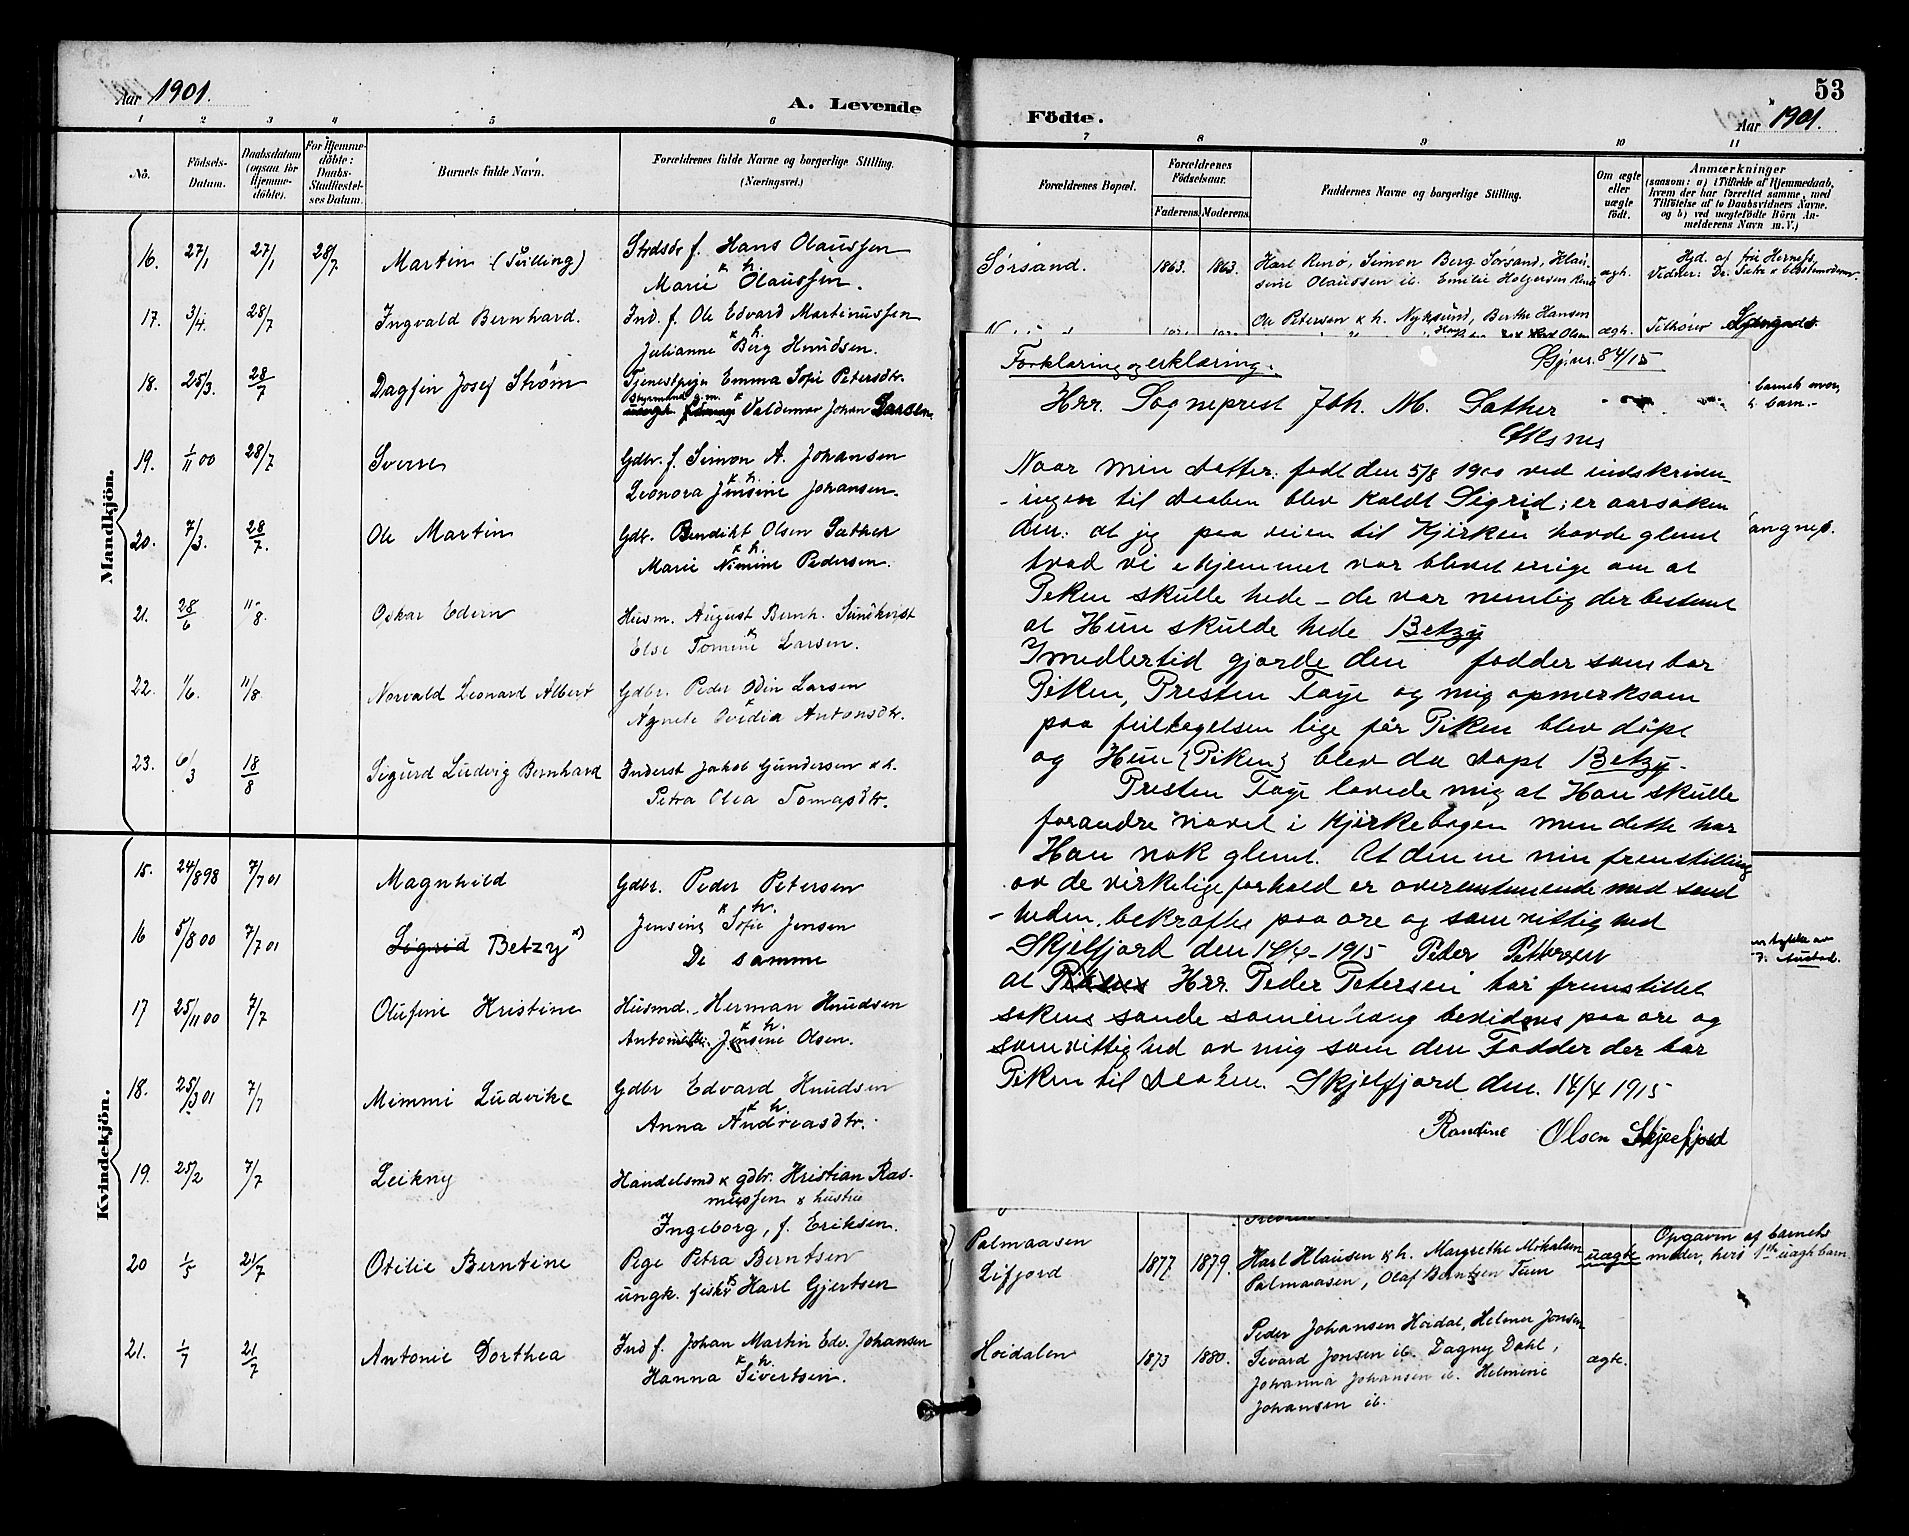 Aar 1901.
A. Levende
1 2 3 4 5 6
No.
Födsels-Datum.
Daabsdatum (ogsaa for Hjemmedöbte).
For Hjemmedöbte: Daabs-Stadfæstelses Datum.
Barnets fulde Navn.
Forældrenes fulde Navne og borgerlige Stilling.
(Næringsvei.)
Mandkjön.
16. 27/1 27/1 28/7 Martin (Tvilling) f. Hans Olaussen
& h.
Marie Olaussen.
17. 3/4 28/7 Ingvald Bernhard. Ind. f. Ole Edvard Martinussen
& h.
Julianne Berg Knudsen.
18. 25/3 28/7 Dagfin Josef Strøm Tjenestpige Emma Sofie Petersdtr.
& Valdemar Johan Larsen.
19. 1/11 00 28/7 Sverre Gdbr. f. Simon A. Johansen
& h.
Leonora Jensine Johansen.
20. 7/3. 28/7. Ole Martin Gdbr. Bendikt Olsen Sæther
& h.
Marie Nimine Pedersen.
21. 28/6 11/8 Oskar Edern Husm. August Bernh. Sundkvist
&
Else Tomine Larsen.
22. 1/6. 11/8 Norvald Leonard Albert Gdbr. Peder Odin Larsen
&
Agnete Ovidia Antonsdtr.
23. 6/3 18/8 Sigurd Ludvig Bernhard Inderst Jakob Gundersen & h.
Petra Olea Tomasdtr.
Kvindekjön.
15. 24/8 98 7/7 01 Magnhild Gdbr. Peder Petersen
& h.
Jensine Sofie Jensen
16 5/8 00 7/7 01 Sigrid Betzy x) De samme
17 25/11 00 7/7 Olufine Kristine Husmd. Herman Knudsen
& h.
Jensine Olsen.
18. 25/3 01 7/7 Mimmi Ludvike Gdbr Edvard Knudsen
& h.
Anna Andreasdtr.
19. 25/2 7/7 Leikny Handelsmd & gdbr. Kristian Ras-
mussen & hustru
Ingeborg, f. Eriksen.
20 1/5 21/7 Otilie Berntine Pige Petra Berntsen
ungk. fisker Karl Gjertsen
21. 1/7 21/7 Antonie Dorthea Ind f. Johan Martin Edv. Johansen
& h.
Hanna Sivertsen.
53
Födte.
Aar 1901.
7 8 9 10 11
Forældrenes Bopæl.
Forældrenes Födselsaar.
Faderens. Moderens.
Faddernes Navne og borgerlige Stilling.
Om ægte eller uægte födt.
Anmærkninger
(saasom: a) i Tilfælde af Hjemmedaab,
hvem der har forrettet samme, med
Tilföielse af to Daabsvidners Navne.
og b) ved uægtefödte Börn An-
melderens Navn m.V.)
Sørsand. 1863. 1863. Karl Renø, Simon Berg Sørsand, Klau-
sine Olaussen ib. Emilie Holgersen ægh. Hjd. af fru Hernes,
Vidner:
Ole Petersen & h. Nyksund, Berthe Hansen
ægh. Tilhører
barnets
barn.-
Forklaring og erklæring. Gj.nr. 84/15
Hrr. Sogneprest Joh. M. Sather
Naar min datter. født den 5/8 1900 ved indskriven-
-ingen til Daaben blev kaldt Sigrid; er aarsaken
den: at jeg paa veien til Kjirken havde glemt
hvad vi i hjemmet var blevet enige om at
Piken skulle hede - de var nemlig der bestemt
at Hun skulde hede Betzy
Imedlertid gjorde den fadder som bar
Piken, Presten Faye og mig opmerksam
paa feiltagelsen lige før Piken blev døpt
og Hun {Piken} blev da døpt Betzy.
Presten Faye lovede mig at Han skulle
forandre navet i Kjirkebogen men dette har
Han nok glemt. At denne min fremstilling
av de virkelige forhold er overenstemende med sand
-heden. bekræftes paa ære og samvittighed
Skjelfjord den 14/4-1915 Peder Pettersen
at Hrr. Peder Petersen har fremstillet
sakens sande samenhæng bevidnes paa ære og
samvittighed av mig som den Fadder der bar
Piken til Daaben. Skjelfjord den. 14/4 1915
Randine Olsen Skjelfjord
Palmaasen
Lifjord 1877. 1879. Karl Klausen & h. Margrethe Mikalsen
Palmaasen, Olaf Berntsen Tuen uægte Opgaven af barnets
moder, hers 1ste uægh barn.
Høidalen 1873 1880. Peder Johansen Høidal, Helmer Jonsen
Sivard Jonsen ib. Dagny Dahl,
Johanna Johansen ib. Helmine
Johansen ib. ægte.